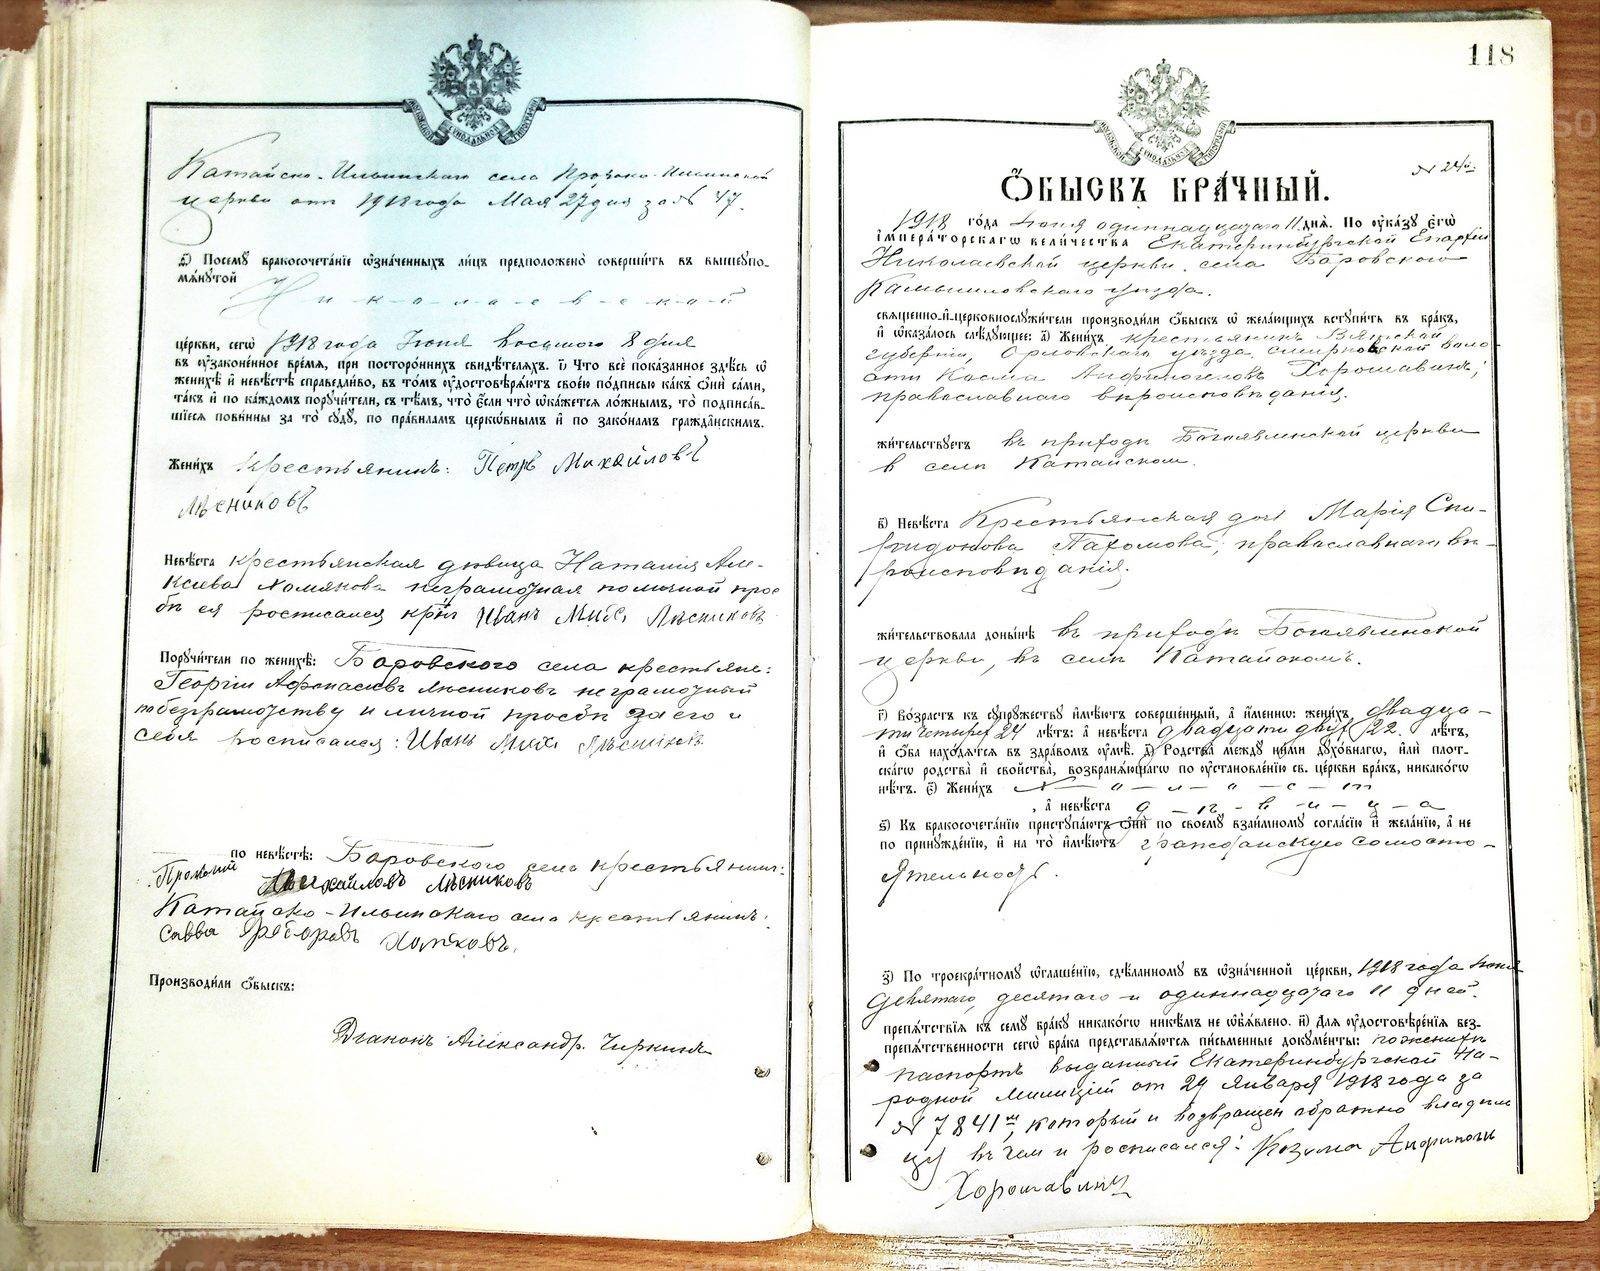 Катайско-Ильинскаго села Пророко-Ильинской
церкви отъ 1918 года Мая 27 дня за № 47.
з) Посему бракосочетанїе ѡзначенныхъ лицъ предположено совершить въ вышеупо-
мянутой
Н-и-к-о-л-а-е-в-с-к-о-й
церкви, сегѡ 1918 года Іюня восьмого 8 дня
въ оузаконенное время, при постороннихъ свидѣтеляхъ. ї) Что всё показанное здѣсь ѡ
женихѣ и невѣстѣ справедливо, въ томъ оудостовѣряютъ своею подписью какъ ѻни сами,
такъ и по каждомъ поручители, съ тѣмъ, что если что ѡкажется ложнымъ, то подписав-
шїеся повинны за то суду, по правиламъ церкѡвнымъ и по законамъ гражданскимъ.
Женихъ крестьянинъ: Петръ Михайловъ
Лѣсниковъ
Невѣста крестьянская дѣвица Наталия Але-
ксѣева Хомякова неграмотная по личной прос
бѣ ея росписался крѣн Иванъ Мих. Лѣсниковъ
Поручители по женихѣ: Боровского села крестьяне:
Георгій Афонасіевъ Лѣсниковъ неграмотный
по безграмотству и личной просбѣ за его и
себя росписался: Иванъ Мих. Лѣсниковъ
по невѣстѣ: Боровского села крестьянинъ:
Прокопий Михайловъ Лѣсниковъ
Катайско-Ильинскаго села крестьянинъ:
Савва Хомяковъ.
Производили ѻбыскъ:
Діаконъ Александр. Чиркинъ
118
№ 24й
Ѻбыскъ брачный.
1918 года Іюня одиннадцатаго 11 дня. По оуказу егѡ
императорскагѡ величества Екатеринбургской Епархіи
Николаевской церкви села Боровского
Камышловского уѣзда.
священно-и-церковнослужители производили ѻбыскъ ѡ желающихъ вступить въ бракъ,
и ѡказалось слѣдующее: а) Женихъ крестьянинъ Вятской
губерніи, Орловскаго уѣзда, Смирновской воло-
сти Косма Анфиногеновъ Хорошавинъ;
православнаго вѣроисповѣданія.
жительствуетъ въ приходѣ Богоявленской церкви
в селѣ Катайскомъ.
в) Невѣста Крестьянская дочь Марія Спи-
ридонова Пахомова, православнаго вѣ-
роисповѣданія.
жительствовала донынѣ въ приходѣ Богоявленской
церкви, въ селѣ Катайскомъ.
г) Возрастъ къ супружеству имѣютъ совершенный, а именнѡ: женихъ двадца-
ти четыре 24 лѣтъ: а невѣста двадцати двухъ 22 лѣтъ,
и ѻба находятся въ здравомъ оумѣ. д) Родства между ними духовнагѡ, или плот-
скагѡ родства и свойства, возбраняющагѡ по оустановленїю св. церкви бракъ, никакогѡ
нѣтъ. е) Женихъ х-о-л-о-с-т
, а невѣста д-ѣ-в-и-ц-а
ѕ) Къ бракосочетанїю приступаютъ ѻни по своему взаимному согласїю и желанїю, а не
по принужденїю, и на то имѣютъ гражданскую самосто-
ятельность.
з) По троекратному ѡглашенїю, сдѣланному въ ѡзначенной церкви, 1918 года Іюня
девятаго, десятаго и одиннадцатаго 11 дней.
препятствїя къ сему браку никакогѡ никѣмъ не ѡбъявлено. и) Для оудостовѣренїя без-
препятственности сегѡ брака представляются письменные документы: по женихѣ
паспортъ выданный Екатеринбургской На-
родной Милиціей от 24 Января 1918 года за
№ 7841м, который и возвращен обратно владѣль
цу въ чем и росписался: Козьма Анфиноген
Хорошавинъ